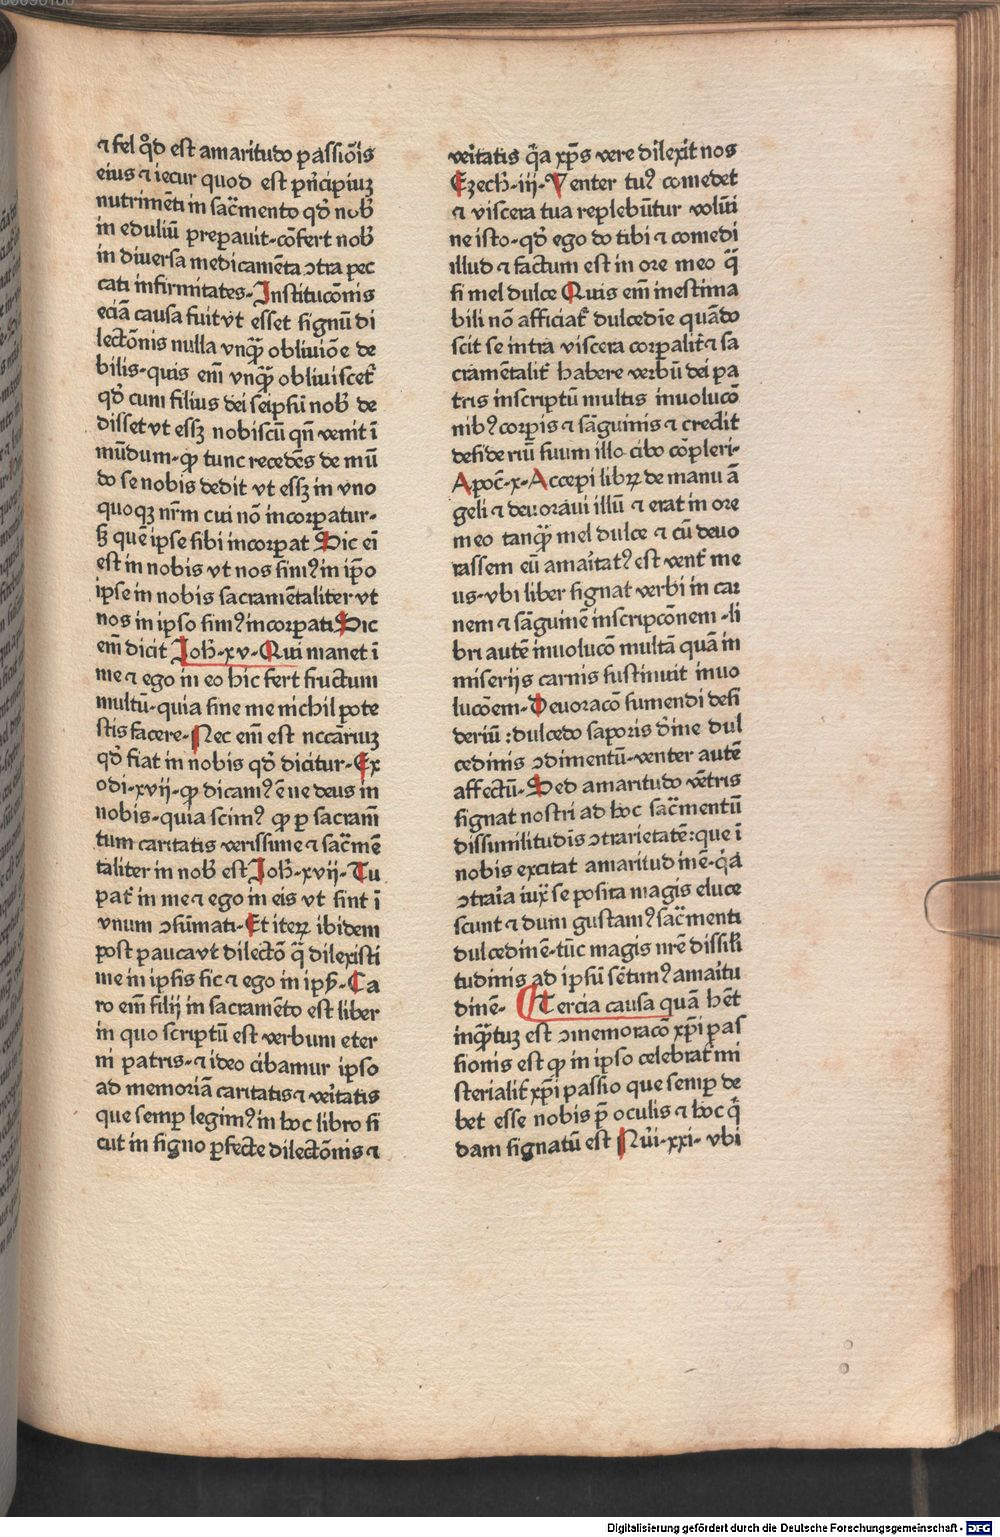 ⁊ fel qͦd est amaritudo passiōis
eius ⁊ iecur quod est pͥncipiuꝫ
nutrimēti in sac̄mento qd̛ nob̛
in eduliū preparauit-cōfert nob̛
in diuersa medicamēta ↄtra pec
cati infirmitates-Institucōnis
eciā causa fuit vt esset signū di
lectōnis nulla vnqᷓ̄ obliuiōe de
bilis-quis em̄ vnqᷓ̄ obliuiscet᷑
qd̛ cum filius dei seip̄sū nob̛ de
disset vt eſſꝫ nobiscū qn̄ venit ī
mūdum-qꝓ tunc recedēs de mū
do se nobis dedit vt eſſꝫ in vno
quoqꝫ nr̄m cui nō incorꝑatur-
sꝫ quē ipse sibi incorꝑat Sic em̄
est in nobis vt nos simꝰ in ip̄o
ipse in nobis sacramētaliter vt
nos in ipso simꝰ incorꝑati Sic
em̄ dicit Joh̛-xv-Qui manet ī
me ⁊ ego in eo hic fert fructum
multū-quia sine me nichil pote
stis facere-Nec em̄ est nccāriuꝫ
qd̛ fiat in nobis qd̛ dicitur-Ex
odi-xvij-qꝓ dicamꝰ ē ne deus in
nobis-quia scimꝰ qꝓ ꝑ sacram̄
tum caritatis verissime ⁊ sac̄mē
taliter in nob̛ est Joh̛-xvij-Tu
pat᷑ in me ⁊ ego in eis vt sint ī
vnum ↄsūmati-Et iteꝝ ibidem
post pauca vt dilectō qᷓ dilexisti
me in ipsis sic ⁊ ego in ip̄s-Ca
ro em̄ filij in sacramēto est liber
in quo scriptū est verbum eter
ni patris-⁊ ideo cibamur ipso
ad memoriā caritatis ⁊ veritatis
que semꝑ legimꝰ in hoc libro si
cut in signo ꝑfecte dilectōnis ⁊
veritatis qͥa xp̄s vere dilexit nos
Ezech̛-iij-Venter tuꝰ comedet
⁊ viscera tua replebūtur volūi
ne isto-qd̛ ego do tibi ⁊ comedi
illud ⁊ factum est in ore meo qᷓ
si mel dulce Quis em̄ inestima
bili nō afficiat᷑ dulcedīe quādo
scit se intra viscera corꝑalit᷑ ⁊ sa
cramētalit᷑ habere verbū dei pa
tris inscriptū multis inuolucō
nibꝰ corꝑis ⁊ sāguinis ⁊ credit
desideriū suum illo cibo cōpleri-
Apoc̄-x-Accepi libꝝ de manu ā
geli ⁊ deuoraui illū ⁊ erat in ore
meo tanqᷓ̄ mel dulce ⁊ cū deuo
rassem eū amaͥcatꝰ est vent᷑ me
us-vbi liber signat verbi in car
nem ⁊ sāguinē inscripcōnem-li
bri autē inuolucō multā quā in
miserijs carnis sustinuit inuo
lucōem-Deuoracō sumendi desi
deriū:dulcedo saporis dn̄ine dul
cedinis ↄdimentū-venter autē
affectū-Sed amaritudo vētris
signat nostri ad hoc sac̄mentū
dissimilitudīs ↄtrarietatē:que ī
nobis excitat amaritudinē-qͥa
ↄtraͥa iux̄ se posita magis eluce
scunt ⁊ dum gustamꝰ sac̄menti
dulcedinē-tūc magis nr̄e dissili
tudinis ad ipsū sētimꝰ amaͥtu
dinē- Tercia causa quā hēt
inqᷓ̄tuꝫ est ↄmemoracō xp̄i pas
sionis est qꝓ in ipso celebrat᷑ mi
sterialit᷑ xp̄i passio que semꝑ de
bet esse nobis p̄ oculis ⁊ hoc qͥ
dam signatū est Nūi-xxi-vbi
Digitalisierung gefördert durch die Deutsche Forschungsgemeinschaft - DFG